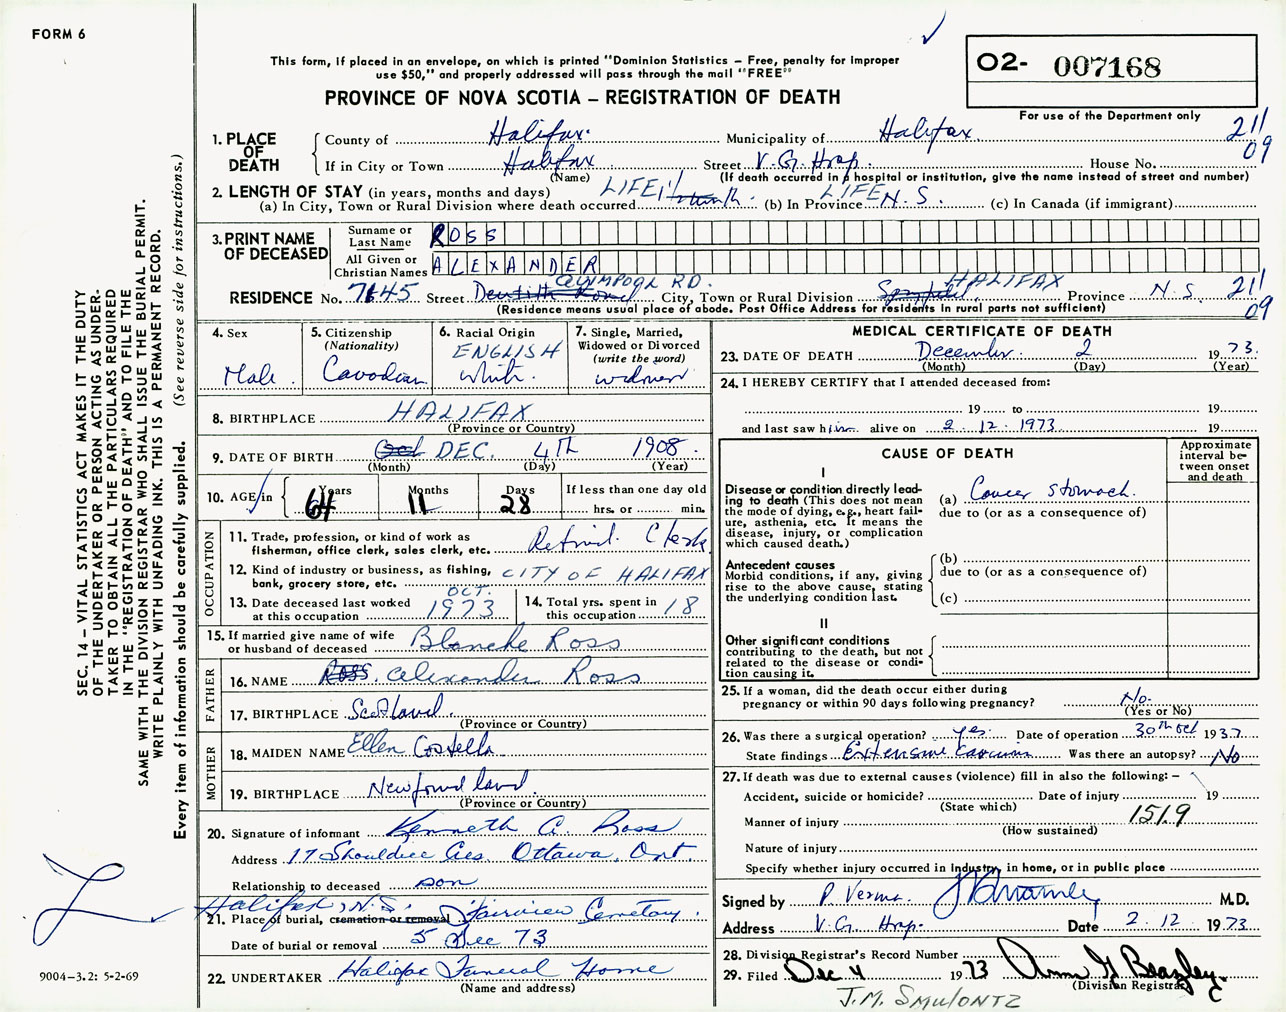 FORM 6
This form, if placed in an envelope, on which is printed "Dominion Statistics – Free, penalty for improper
use $50," and properly addressed will pass through the mail "FREE"
PROVINCE OF NOVA SCOTIA – REGISTRATION OF DEATH
O2- 007168
For use of the Department only
211
09
1. PLACE OF DEATH
County of Halifax Municipality of Halifax
If in City or Town Halifax Street V. G. Hosp. House No.
(Name) (If death occurred in a hospital or institution, give the name instead of street and number)
2. LENGTH OF STAY (in years, months and days)
(a) In City, Town or Rural Division where death occurred LIFE (b) In Province LIFE N.S. (c) In Canada (if immigrant)
3. PRINT NAME OF DECEASED
Surname or Last Name ROSS
All Given or Christian Names ALEXANDER
RESIDENCE No. 7145 Street QUINPOOL RD. City, Town or Rural Division HALIFAX Province N.S. 211
09
(Residence means usual place of abode. Post Office Address for residents in rural parts not sufficient)
4. Sex
Male
5. Citizenship
(Nationality)
Canadian
6. Racial Origin
ENGLISH
White
7. Single, Married,
Widowed or Divorced
(write the word)
widower
8. BIRTHPLACE HALIFAX
(Province or Country)
9. DATE OF BIRTH DEC. 4TH 1908
(Month) (Day) (Year)
10. AGE in
Years 64 Months 11 Days 28
If less than one day old
hrs. or min.
OCCUPATION
11. Trade, profession, or kind of work as
fisherman, office clerk, sales clerk, etc. Retired. Clerk
12. Kind of industry or business, as fishing,
bank, grocery store, etc. CITY OF HALIFAX
13. Date deceased last worked
at this occupation OCT. 1973
14. Total yrs. spent in
this occupation 18
15. If married give name of wife
or husband of deceased Blanche Ross
FATHER
16. NAME Alexander Ross
17. BIRTHPLACE Scotland.
(Province or Country)
MOTHER
18. MAIDEN NAME Ellen Costella
19. BIRTHPLACE Newfoundland.
(Province or Country)
20. Signature of informant Kenneth A. Ross
Address 17 Shouldice Cres. Ottawa, Ont.
Relationship to deceased son
Halifax, N.S.
21. Place of burial, cremation or removal Fairview Cemetery.
Date of burial or removal 5 Dec 73
22. UNDERTAKER Halifax Funeral Home
(Name and address)
MEDICAL CERTIFICATE OF DEATH
23. DATE OF DEATH December 2 1973.
(Month) (Day) (Year)
24. I HEREBY CERTIFY that I attended deceased from:
19 to 19
and last saw him alive on 2.12.1973 19
CAUSE OF DEATH
Approximate
interval be-
tween onset
and death
I
Disease or condition directly lead-
ing to death (This does not mean
the mode of dying, e.g., heart fail-
ure, asthenia, etc. It means the
disease, injury, or complication
which caused death.)
(a) Cancer stomach.
due to (or as a consequence of)
Antecedent causes
Morbid conditions, if any, giving
rise to the above cause, stating
the underlying condition last.
(b)
due to (or as a consequence of)
(c)
II
Other significant conditions
contributing to the death, but not
related to the disease or condi-
tion causing it.
25. If a woman, did the death occur either during
pregnancy or within 90 days following pregnancy? No.
(Yes or No)
26. Was there a surgical operation? yes Date of operation 30th Oct 1937
State findings Extensive Was there an autopsy? No
27. If death was due to external causes (violence) fill in also the following: –
Accident, suicide or homicide? Date of injury 19
(State which)
Manner of injury 151.9
(How sustained)
Nature of injury
Specify whether injury occurred in industry, in home, or in public place
Signed by P. Verma M.D.
Address V. G. Hosp. Date 2.12.1973
28. Division Registrar's Record Number
29. Filed Dec 4 1973
(Division Registrar)
J.M. SMULONTZ
SEC. 14 – VITAL STATISTICS ACT MAKES IT THE DUTY
OF THE UNDERTAKER OR PERSON ACTING AS UNDER-
TAKER TO OBTAIN ALL THE PARTICULARS REQUIRED
IN THE "REGISTRATION OF DEATH" AND TO FILE THE
SAME WITH THE DIVISION REGISTRAR WHO SHALL ISSUE THE BURIAL PERMIT.
WRITE PLAINLY WITH UNFADING INK. THIS IS A PERMANENT RECORD.
Every item of information should be carefully supplied. (See reverse side for instructions.)
9004–3.2: 5-2-69